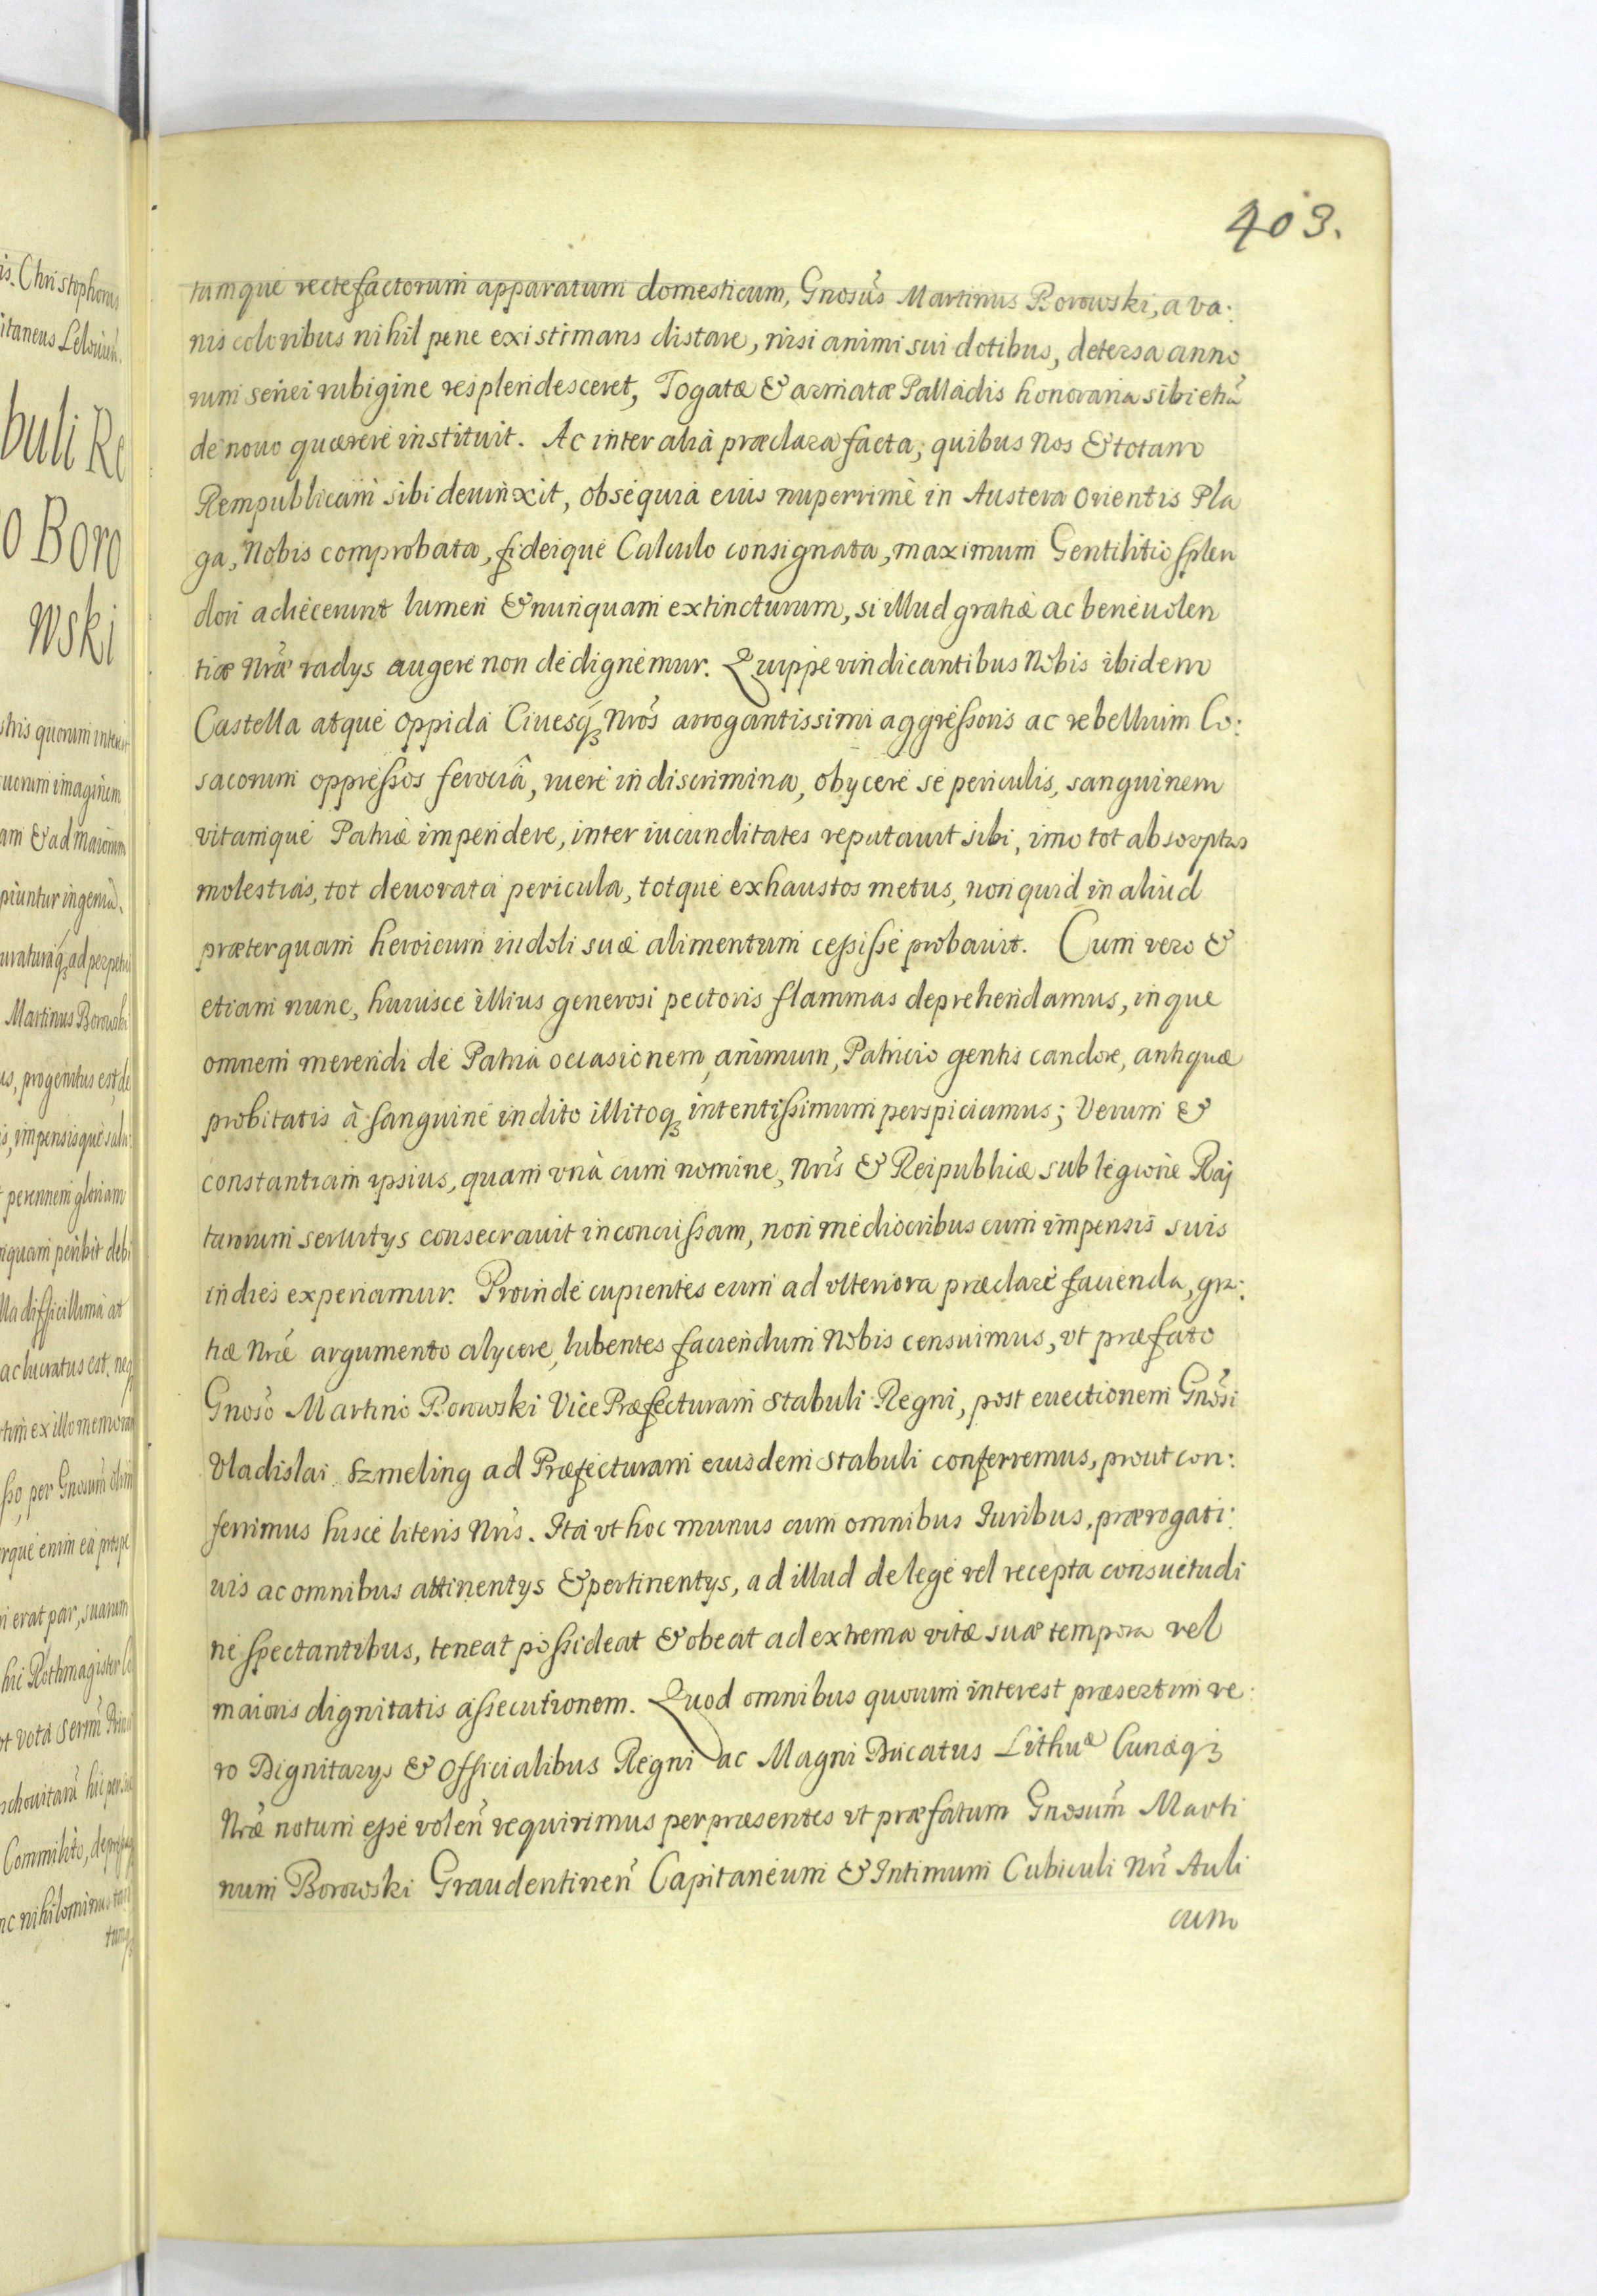 403.
tumque rectefactorum apparatum domesticum, Gnosus Martinus Borowski, a va:
nis coloribus nihil pene existimans distare, nisi animi sui dotibus, detersa anno
rum senei rubigine resplendesceret, Togatæ & armatæ Palladis honoraria sibi etiã
de nouo quærere instituit. Ac inter alia præclara facta, quibus Nos & totam
Rempublicam sibi deuinxit, obsequia eius nuperrimè in Austera Orientis Pla
ga, Nobis comprobata, fideique Calculo consignata, maximum Gentilitio splen
dori adiecerunt lumen & nunquam extincturum, si illud gratiæ ac beneuolen
tiæ Nræ radys augere non dedignemur. Quippe vindicantibus Nobis ibidem
Castella atque Oppida Ciuesq̃ Nros arrogantissimi aggressoris ac rebellium Co:
sacorum oppressos ferociâ, ruere in discrimina, obycere se periculis, sanguinem
vitamque Patriæ impendere, inter iucunditates reputauit sibi, imo tot absorptas
molestias, tot deuorata pericula, totque exhaustos metus, non quid in aliud
præterquam heroicum indoli suæ alimentum cessisse probauit. Cum vero &
etiam nunc, huiusce illius generosi pectoris flammas deprehendamus, inque
omnem merendi de Patria occasionem, animum, Patricio gentis candore, antiquæ
probitatis à sanguine indito illitoq̃ intentissimum perspiciamus; Verum &
constantiam ipsius, quam vnà cum nomine, Nris & Reipublicæ sub legione Raj
tarorum seruitys consecrauit inconcussam, non mediocribus cum impensis suis
indies experiamur. Proinde cupientes eum ad vlteriora præclarè facienda, gra:
tiæ Nræ argumento alycere, lubentes faciendum Nobis censuimus, vt præfato
Gnoso Martino Borowski Vice Præfecturam Stabuli Regni, post euectionem Gnosi
Vladislai Szmeling ad Præfecturam eiusdem Stabuli conferremus, prout con:
ferimus hisce literis Nris. Ita vt hoc munus cum omnibus Iuribus, prærogati:
uis ac omnibus attinentys & pertinentys, ad illud de lege vel recepta consuetudi
ne spectantibus, teneat possideat & obeat ad extrema vitæ suæ tempora vel
maioris dignitatis assecutionem. Quod omnibus quorum interest præsertim ve:
ro Dignitarys & Officialibus Regni ac Magni Ducatus Lithuæ Curiæq̃
Nræ notum esse volen̄ requirimus per præsentes vt præfatum Gnosum Marti
num Borowski Graudentinen̄ Capitaneum & Intimum Cubiculi Nri Auli
cum